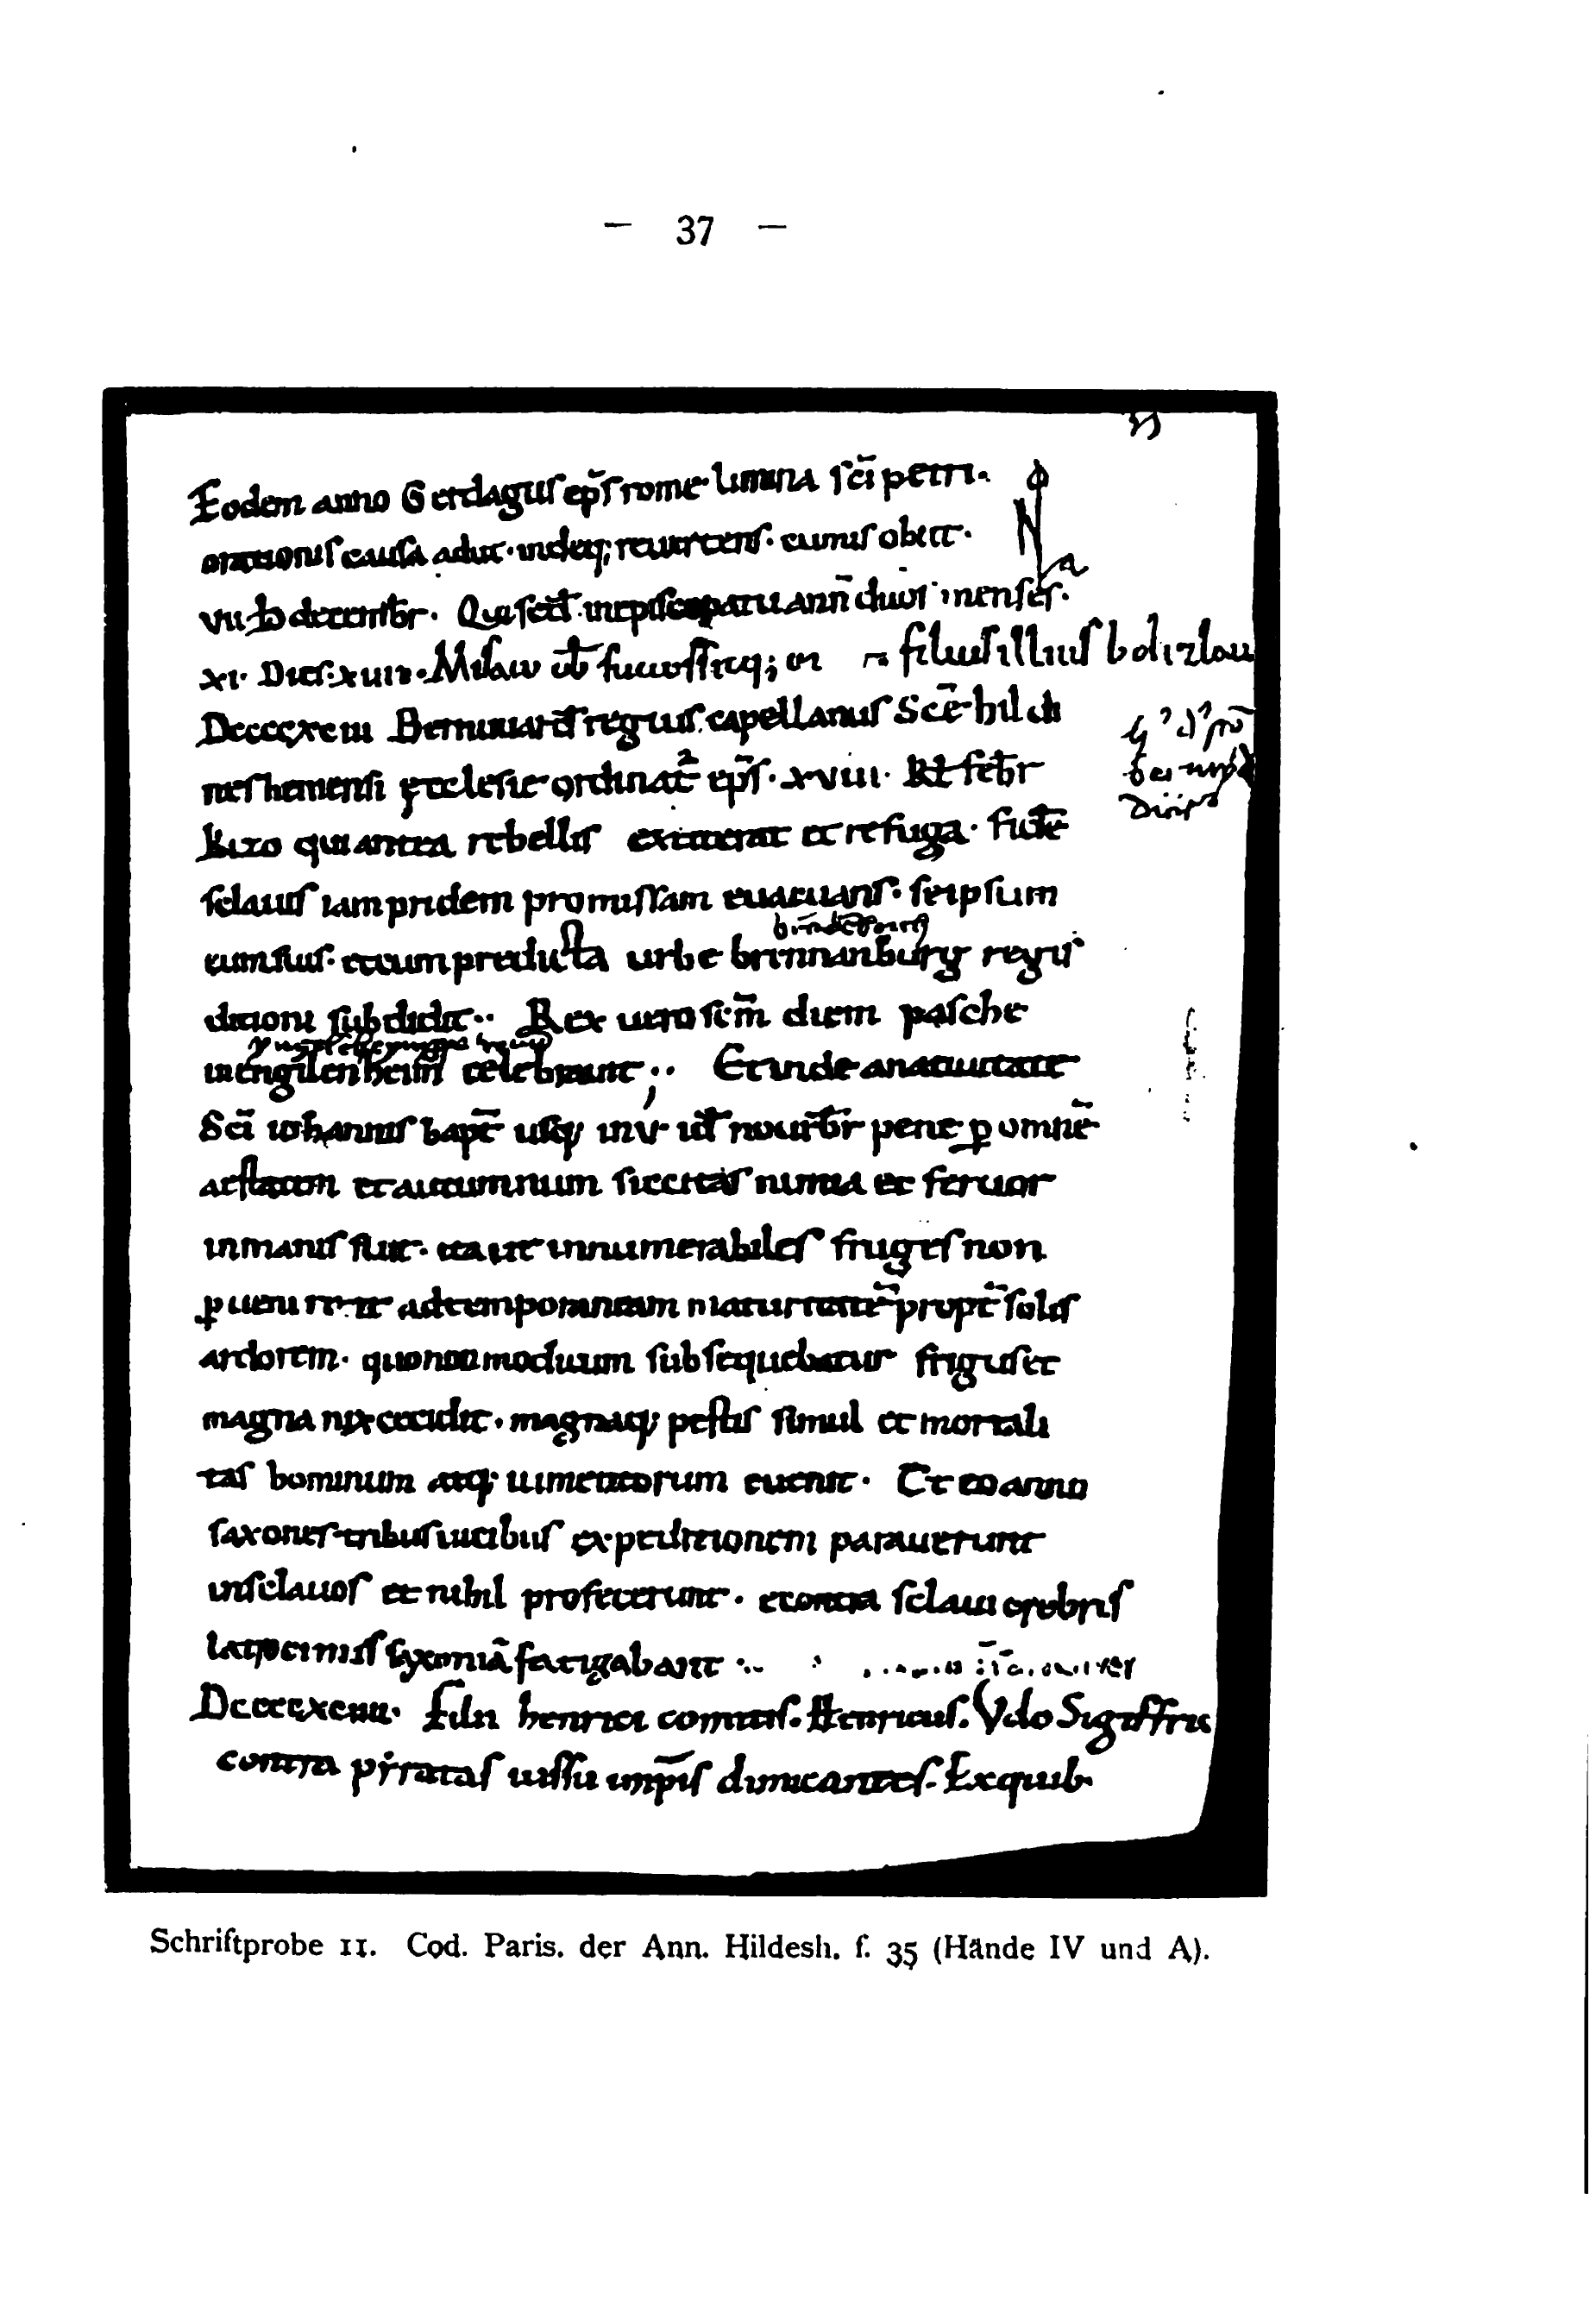 — 37 —
Eodem anno Gerdagus ep̄s rome limina sc̄i petri.
orationis causa adiit. indeq; reuertens. eumis obiit.
vii id decembr̄. Qui sedt̄ in episcopatu ann̄ duos menses.
xi. Dies. xuiii. Misaco ob̄
filius illius bolizlau
Dccccxciii Bernuuard' regius capellanus Sc̄e hild
neshemensi ęcclesie ordinat² ep̄s. xviii. kl febr̄
Kizo qui antea rebellis extiterat et refuga. fidē
sclauis iam pridem promissam euacuans. seipsum
cum suis. et cum predicta urbe brennanburg regis
ditioni subdidit.. Rex uero sc̄m diem pasche
in engilenheim celebrauit;.. Et inde a natiuitate
Sc̄i iohannis bapt̄ usq; in v id nouēbr̄ pene ꝑ omnē
aestatem et autumnum siccitas nimia et feruor
inmanis fuit. ita ut innumerabiles fruges non
ꝑuenirent ad temporaneam maturitatē propt̄ solis
ardorem. quo non modicum subsequebatur frigus et
magna nix cecidit. magnaq; pestis simul et mortali
tas hominum atq; iumentorum euenit. Et eo anno
saxones tribus uicibus expeditionem parauerunt
in sclauos et nihil profecerunt. econtra sclaui crebris
latrociniis saxoniā fatigabant..
Dccccxciiii. Filii henrici comitis. Henricus. Vdo Sigiffrit
contra pirratas iussu imp̄is dimicantes. Ex quib.
Schriftprobe 11. Cod. Paris. der Ann. Hildesh. f. 35 (Hände IV und A).